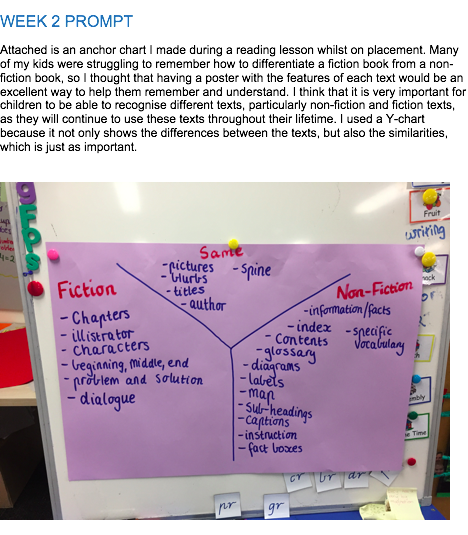 WEEK 2 PROMPT
Attached is an anchor chart I made during a reading lesson whilst on placement. Many
of my kids were struggling to remember how to differentiate a fiction book from a non-
fiction book, so I thought that having a poster with the features of each text would be an
excellent way to help them remember and understand. I think that it is very important for
children to be able to recognise different texts, particularly non-fiction and fiction texts,
as they will continue to use these texts throughout their lifetime. I used a Y-chart
because it not only shows the differences between the texts, but also the similarities,
which is just as important.
Fruit
writing
Same
-pictures
-blurbs
-titles
-author
-spine
Fiction
- Chapters
- illistrator
- characters
- beginning, middle, end
- problem and solution
- dialogue
Non-Fiction
-information/facts
-index
- Contents
-glossary
-diagrams
-labels
-map
-sub-headings
-captions
-instruction
- fact boxes
-specific
vocabulary
or
e Time
cr
br
dr
pr
gr